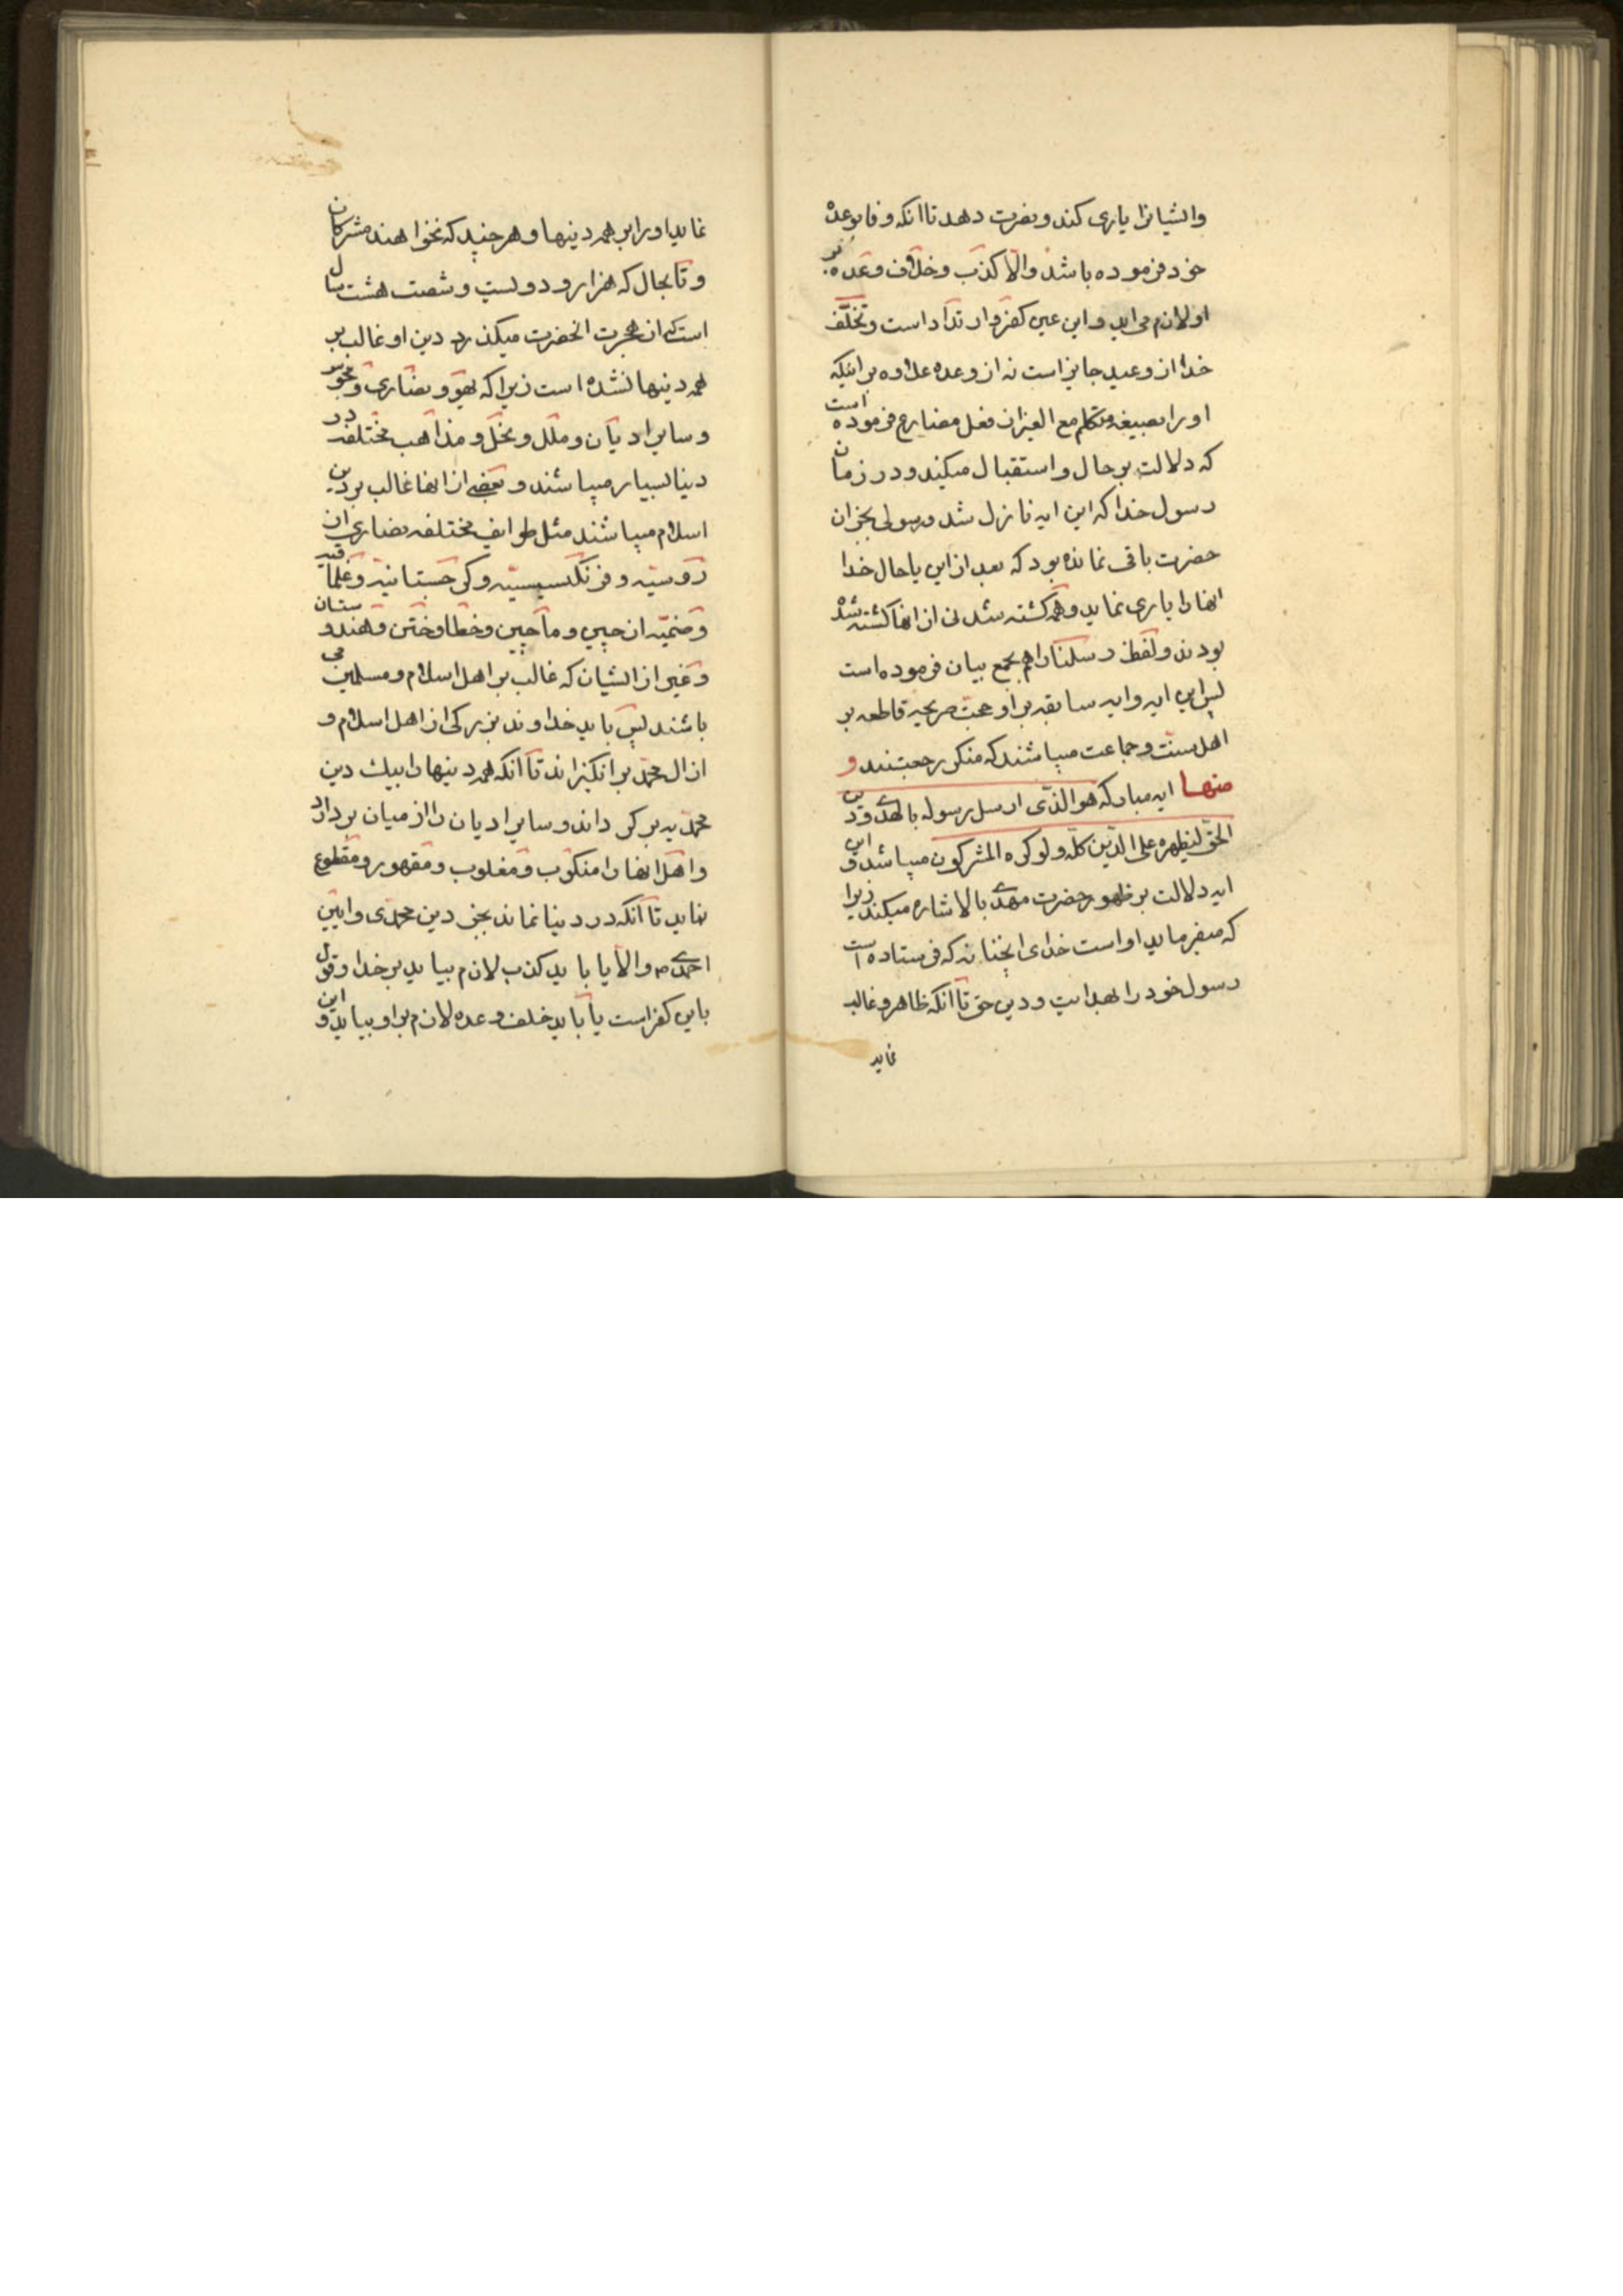 وایشانرا یاری کند و نصرت دهد تا انکه وفا بوعده
خود فرموده باشد والا کذب وخلاف وعده بر
او لازم می اید و این عین کفر و ارتداد است و تخلف
خدا از وعید جایز است نه از وعده علاوه بر اینکه
او را بصیغه متکلم مع الغیر از فعل مضارع فرموده است
که دلالت بر حال و استقبال میکند و در زمان
رسول خدا که این ایه نازل شد رسولی بجز ان
حضرت باقی نمانده بود که بعد از این یا حال خدا
انها را یاری نماید و همه کشته شدنی از انها کشته شده
بودند و لفظ رسلنا را هم بجمع بیان فرموده است
پس این ایه و ایه سابقه بر او حجت صریحه قاطعه بر
اهل سنت و جماعت میباشند که منکر رجعتند و
منها ایه مبارکه هو الذی ارسل رسوله بالهدی ودین
الحق لیظهره علی الدین کله ولو کره المشرکون میباشد و این
ایه دلالت بر ظهور حضرت مهدی بالاشاره میکند زیرا
که میفرماید او است خدای انچنانه که فرستاده است
رسول خود را بهدایت و دین حق تا انکه ظاهر و غالب
نماید
نماید او را بر همه دینها و هر چند که نخواهند مشرکان
و تا بحال که هزار و دولیست و شصت هشت سال
است که از هجرت انحضرت میکذرد دین او غالب بر
همه دینها نشده است زیرا که یهود و نصاری و مجوس
و سایر ادیان و ملل و نحل و مذاهب مختلفه در
دنیا بسیار میباشند و بعضی از انها غالب بر دین
اسلام میباشند مثل طوایف مختلفه نصاری از
روسیه و فرنکسیسیه و کرجستانیه و
و صنمیه از چین و ماچین و خطا و ختن و هندوستان
و غیر از ایشان که غالب بر اهل اسلام و مسلمین می
باشند پس باید خداوند بزرکی از اهل اسلام و
از ال محمد برانکیزاند تا انکه همه دینها را بیک دین
محمدیه بر کرداند و سایر ادیان را از میان بردارد
و اهل انها را منکوب و مغلوب و مقهور و مقطوع
نماید تا انکه در دنیا نماند بجز دین محمدی و ایین
احمدی ص والا یا باید کذب لازم بیاید بر خدا و قول
باین کفر است یا باید خلف وعده لازم بر او بیاید و این